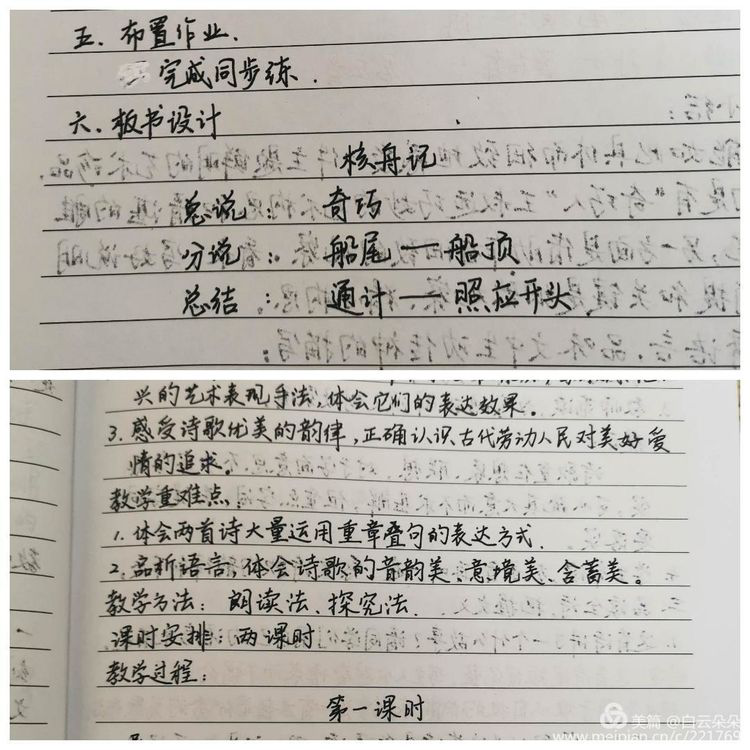 五、布置作业.
完成同步练.
六、板书设计
核舟记
总说: 奇巧
分说: 船尾——船顶
总结: 通计——照应开头
兴的艺术表现手法,体会它们的表达效果。
3. 感受诗歌优美的韵律,正确认识古代劳动人民对美好爱
情的追求。
教学重难点
1. 体会两首诗大量运用重章叠句的表达方式.
2. 品析语言,体会诗歌的音韵美、意境美、含蓄美。
教学方法: 朗读法、探究法.
课时安排: 两课时
教学过程:
第一课时
美篇 @白云朵朵
www.meipian.cn/c/221769